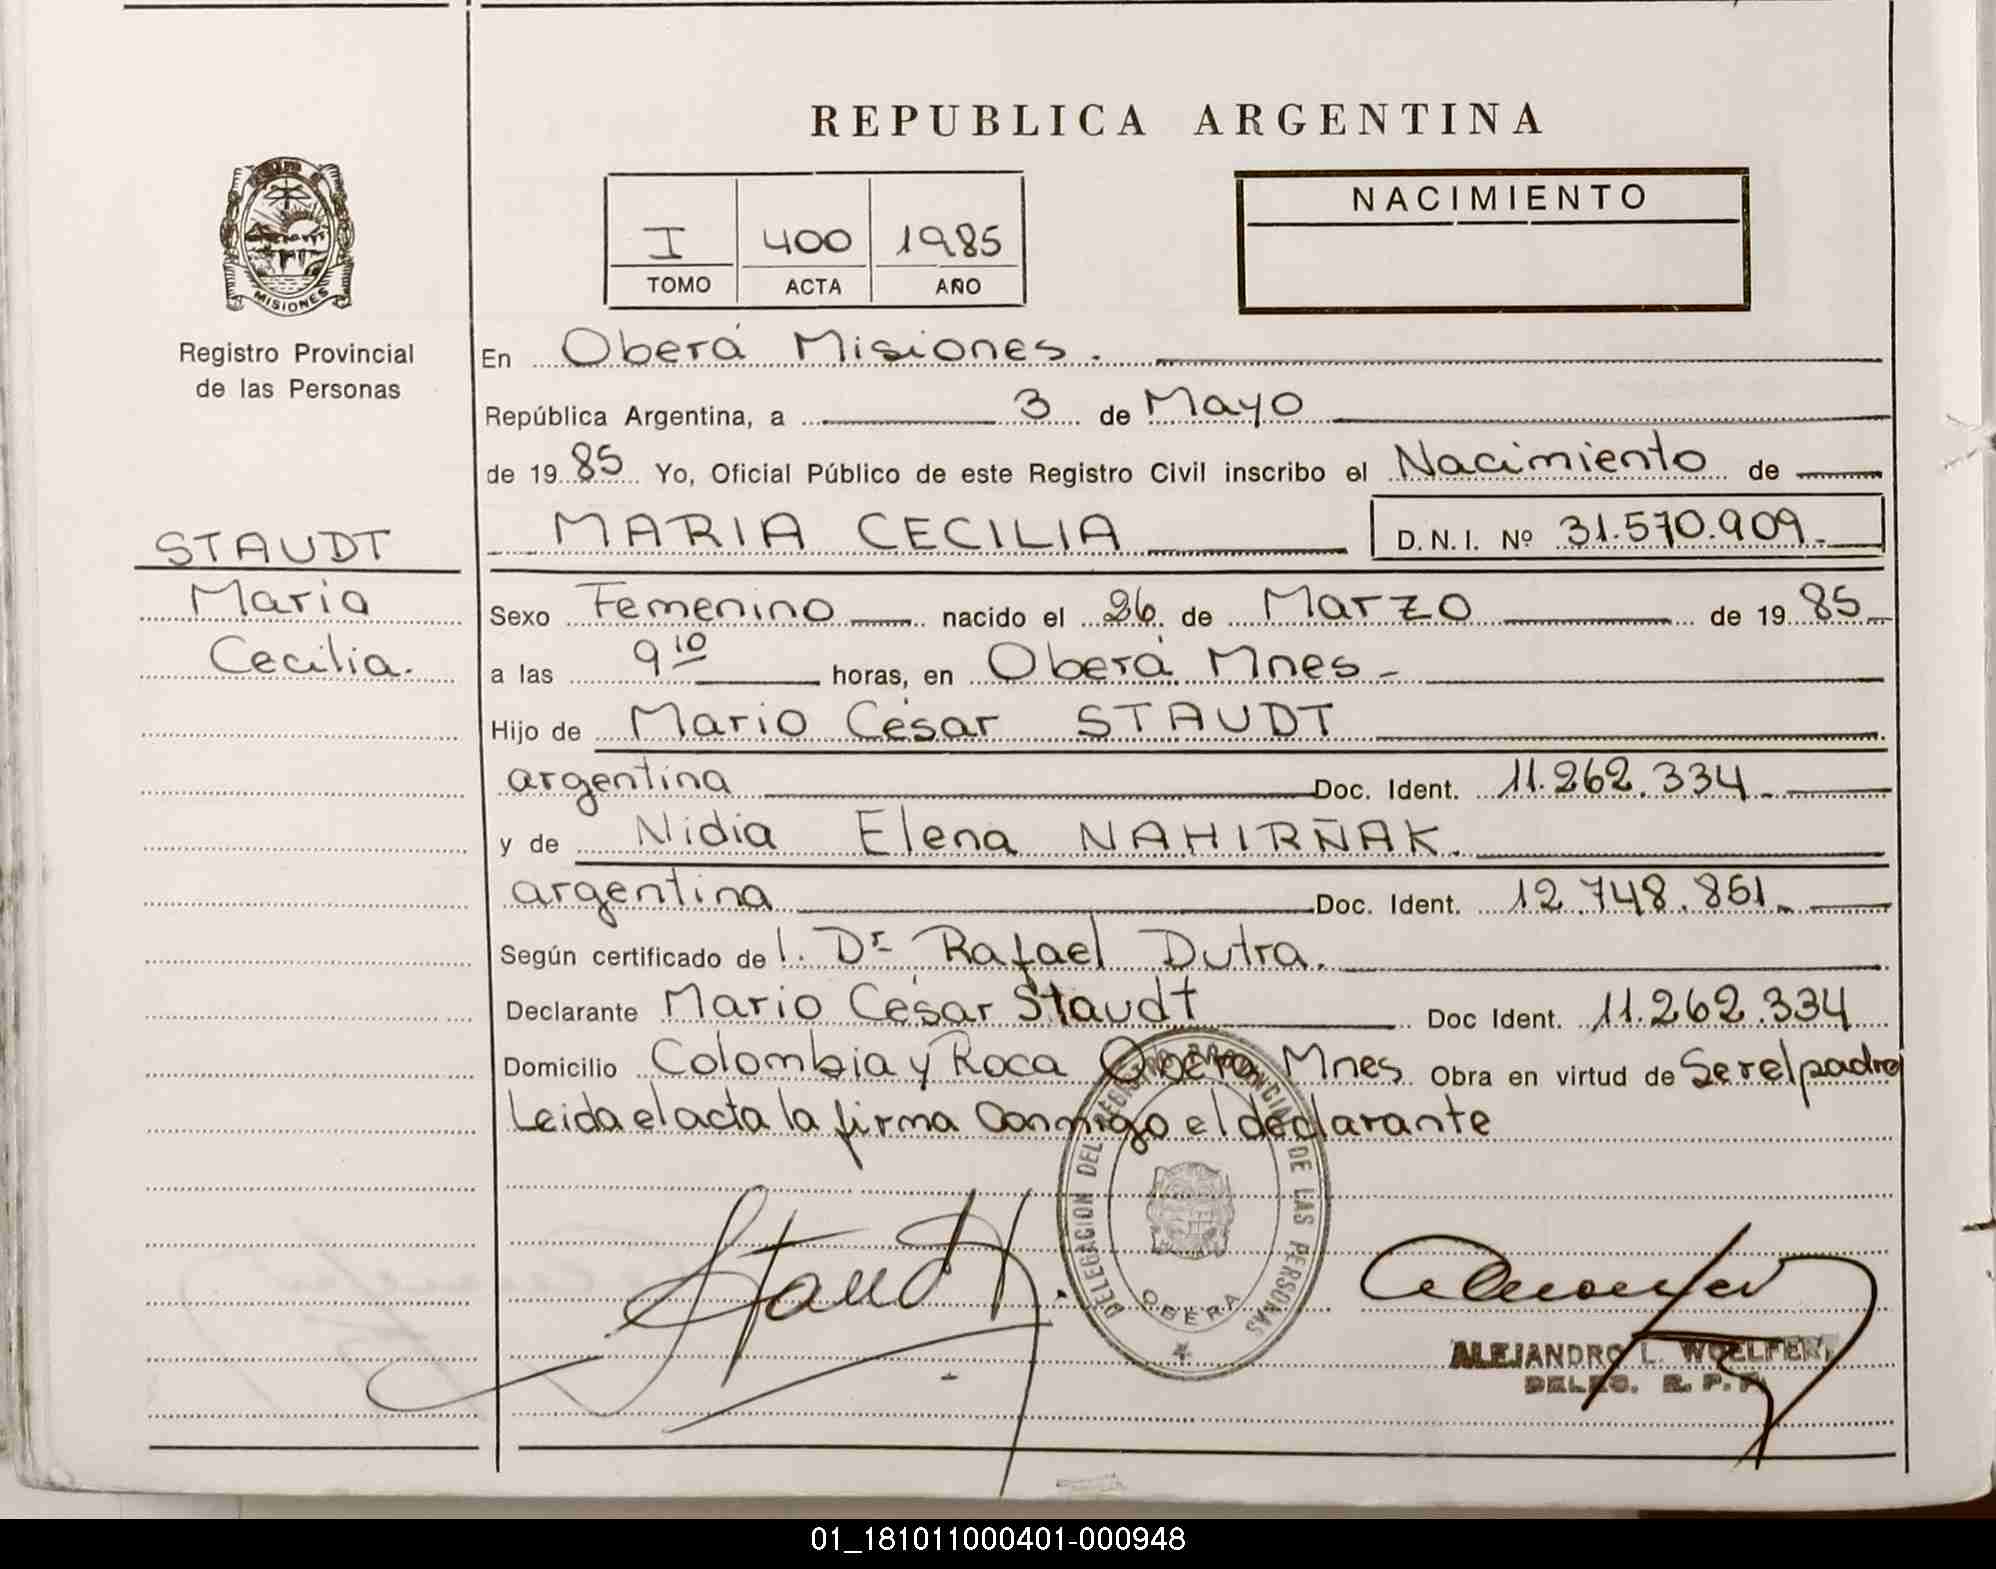 REPUBLICA ARGENTINA
MISIONES
Registro Provincial
de las Personas
STAUDT
Maria
Cecilia.
I 400 1985
TOMO ACTA AÑO
NACIMIENTO
En Oberá Misiones.
República Argentina, a 3 de Mayo
de 1985 Yo, Oficial Público de este Registro Civil inscribo el Nacimiento de
MARIA CECILIA D.N.I. Nº 31.570.909
Sexo Femenino nacido el 26 de Marzo de 1985
a las 9 10 horas, en Oberá Mnes
Hijo de Mario César STAUDT
argentina Doc. Ident. 11.262.334
y de Nidia Elena NAHIRÑAK.
argentina Doc. Ident. 12.748.851
Según certificado de l. Dr Rafael Dutra.
Declarante Mario César Staudt Doc Ident. 11.262.334
Domicilio Colombia y Roca Oberá Mnes Obra en virtud de Ser el padre
Leida el acta la firma Conmigo el declarante
DELEGACION DEL REGISTRO PROVINCIAL DE LAS PERSONAS
OBERA
Staudt
ALEJANDRO L. WOELFERT
DELEG. R. P. P.
01_181011000401-000948